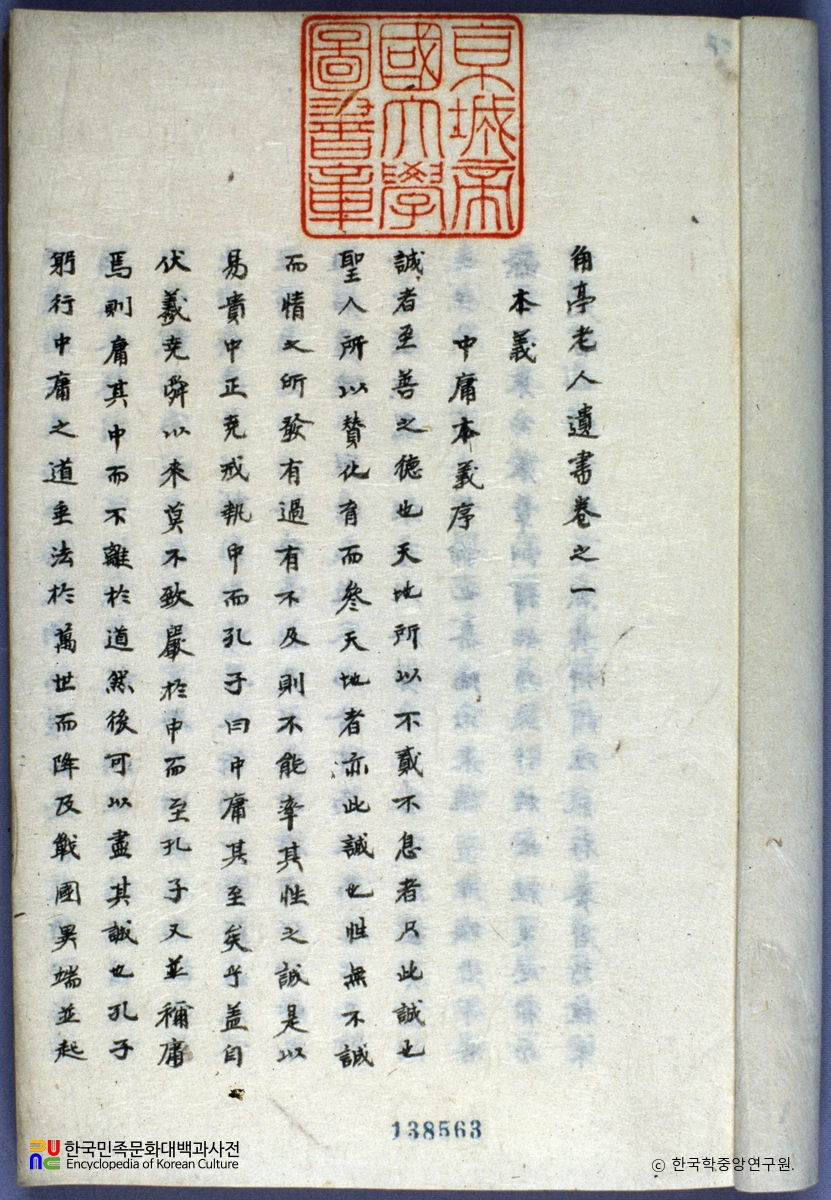 京城帝
國大學
圖書章
角亭老人遺書卷之一
本義
中庸本義序
誠者至善之德也天地所以不貳不息者只此誠也
聖人所以贊化育而參天地者亦此誠也性無不誠
而情之所發有過有不及則不能率其性之誠是以
易貴中正堯戒執中而孔子曰中庸其至矣乎盖自
伏羲堯舜以来莫不致嚴於中而至孔子又並稱庸
焉則庸其中而不離於道然後可以盡其誠也孔子
躬行中庸之道垂法於萬世而降及戰國異端並起
138563
한국민족문화대백과사전
Encyclopedia of Korean Culture
© 한국학중앙연구원.